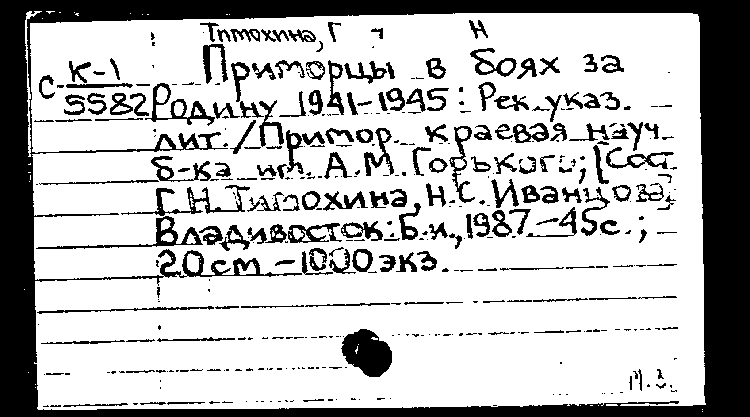 Тимохина, Г Н
С К-1 Приморцы в боях за
5582 Родину 1941-1945 : Рек. указ.
лит. / Примор. краевая науч.
б-ка им. А.М. Горького; [Сост.
Г.Н. Тимохина, Н.С. Иванцова.
Владивосток: Б.и., 1987.-45с. ;
20см. -1000 экз.